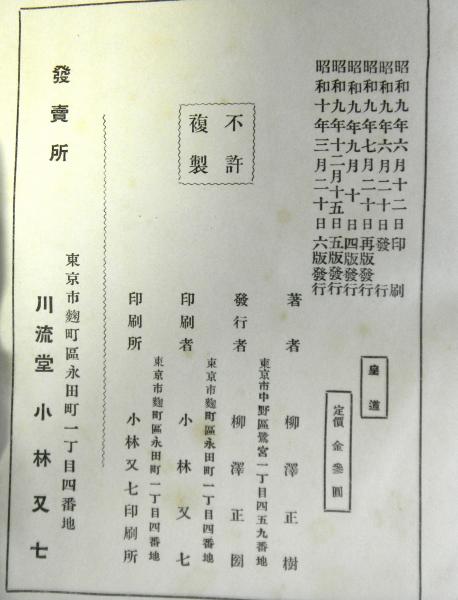 昭和九年六月十二日印刷
昭和九年六月二十日發行
昭和九年七月二十日再版發行
昭和九年九月十日四版發行
昭和九年十二月十五日五版發行
昭和十年三月二十日六版發行
皇道
定價金參圓
不許
複製
著者 柳澤正樹
東京市中野區鷺宮一丁目四五九番地
發行者 柳澤正圀
東京市麴町區永田町一丁目四番地
印刷者 小林又七
東京市麴町區永田町一丁目四番地
印刷所 小林又七印刷所
東京市麴町區永田町一丁目四番地
發賣所 川流堂 小林又七